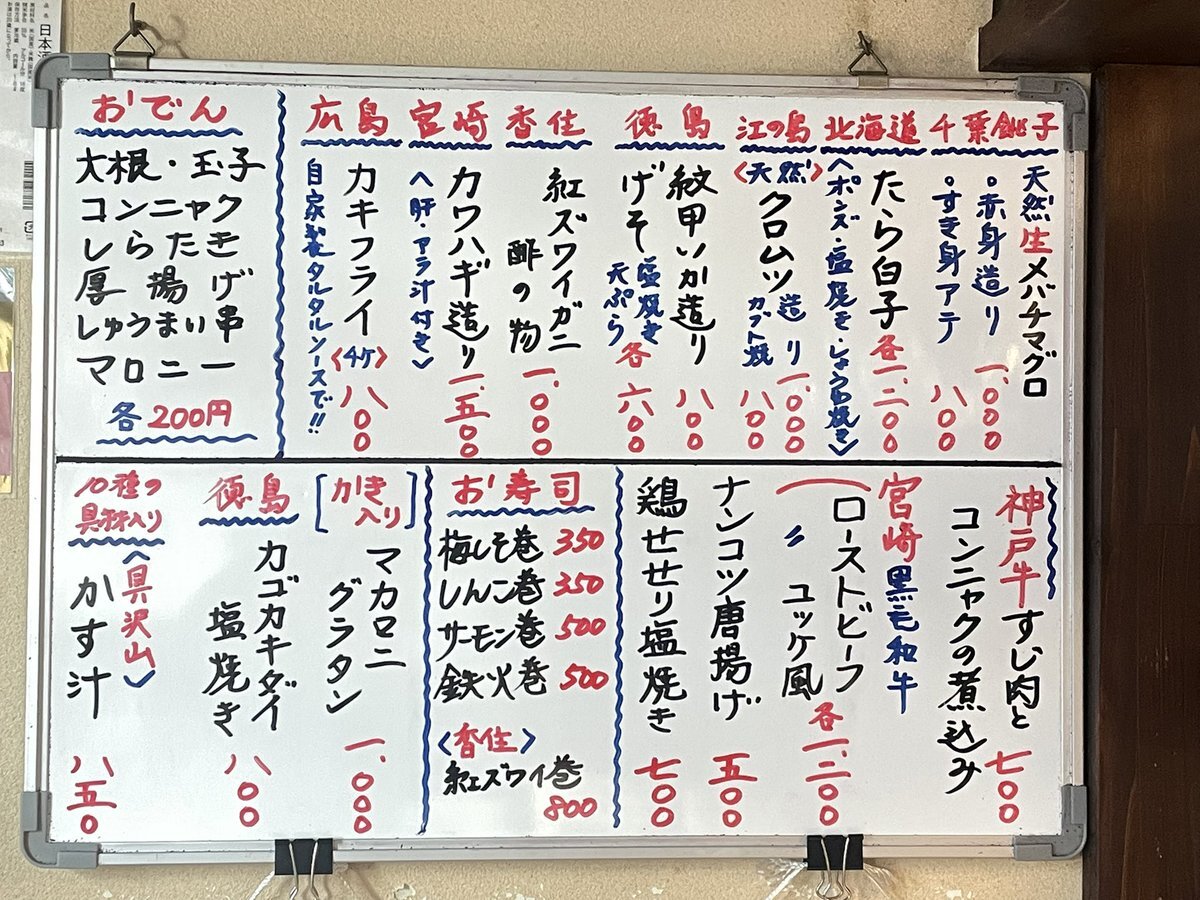 千葉銚子
天然生メバチマグロ
。赤身造り 一、〇〇〇
。すき身アテ 八〇〇
北海道
たら白子 各一、二〇〇
〈ポンズ・塩焼き・しょうゆ焼き〉
江の島
〈天然〉
クロムツ 造り 一、〇〇〇
カブト焼 八〇〇
徳島
紋甲いか造り 八〇〇
げそ 塩焼き 天ぷら 各六〇〇
香住
紅ズワイガニ
酢の物 一、〇〇〇
宮崎
カワハギ造り 一、五〇〇
〈肝・アラ汁付き〉
広島
カキフライ〈4ケ〉 八〇〇
自家製タルタルソースで!!
おでん
大根・玉子
コンニャク
しらたき
厚揚げ
しゅうまい串
マロニー
各200円
神戸牛すじ肉と
コンニャクの煮込み 七〇〇
宮崎黒毛和牛
ローストビーフ
〃 ユッケ風 各一、二〇〇
ナンコツ唐揚げ 五〇〇
鶏せせり塩焼き 七〇〇
お寿司
梅しそ巻 350
しんこ巻 350
サーモン巻 500
鉄火巻 500
〈香住〉
紅ズワイ巻
800
[かき入り]
マカロニ
グラタン 一、〇〇〇
徳島
カゴカキダイ
塩焼き 八〇〇
10種の
具材入り
〈具沢山〉
かす汁 八五〇